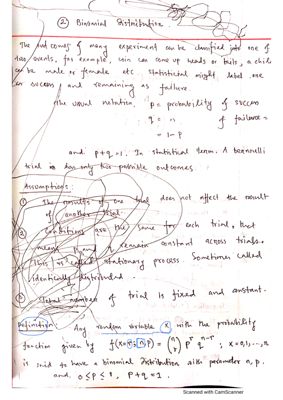 ② Binomial Distribution
The outcomes of many experiment can be classified into one of
two events, for example, coin can come up heads or tails, a child
can be male or female etc. Statistical might label one
as success and remaining as failure.
The usual notation, p = probability of success
q = " of failure =
= 1-p
and p+q=1. In statistical term. A bernoulli
trial has only two possible outcomes.
Assumptions:
① The results of one trial does not affect the result
of another trial.
② Conditions are the same for each trial, that
means p and q remain constant across trials.
This is called stationary process. Sometimes called
identically distributed.
③ Total number of trial is fixed and constant.
Definition: Any random variable X with the probability
function given by f(x; n, p) = (n r) p^r q^n-r ; x=0,1,...,n
is said to have a binomial distribution with parameter n, p.
and, 0≤p≤1, p+q=1.
Scanned with CamScanner